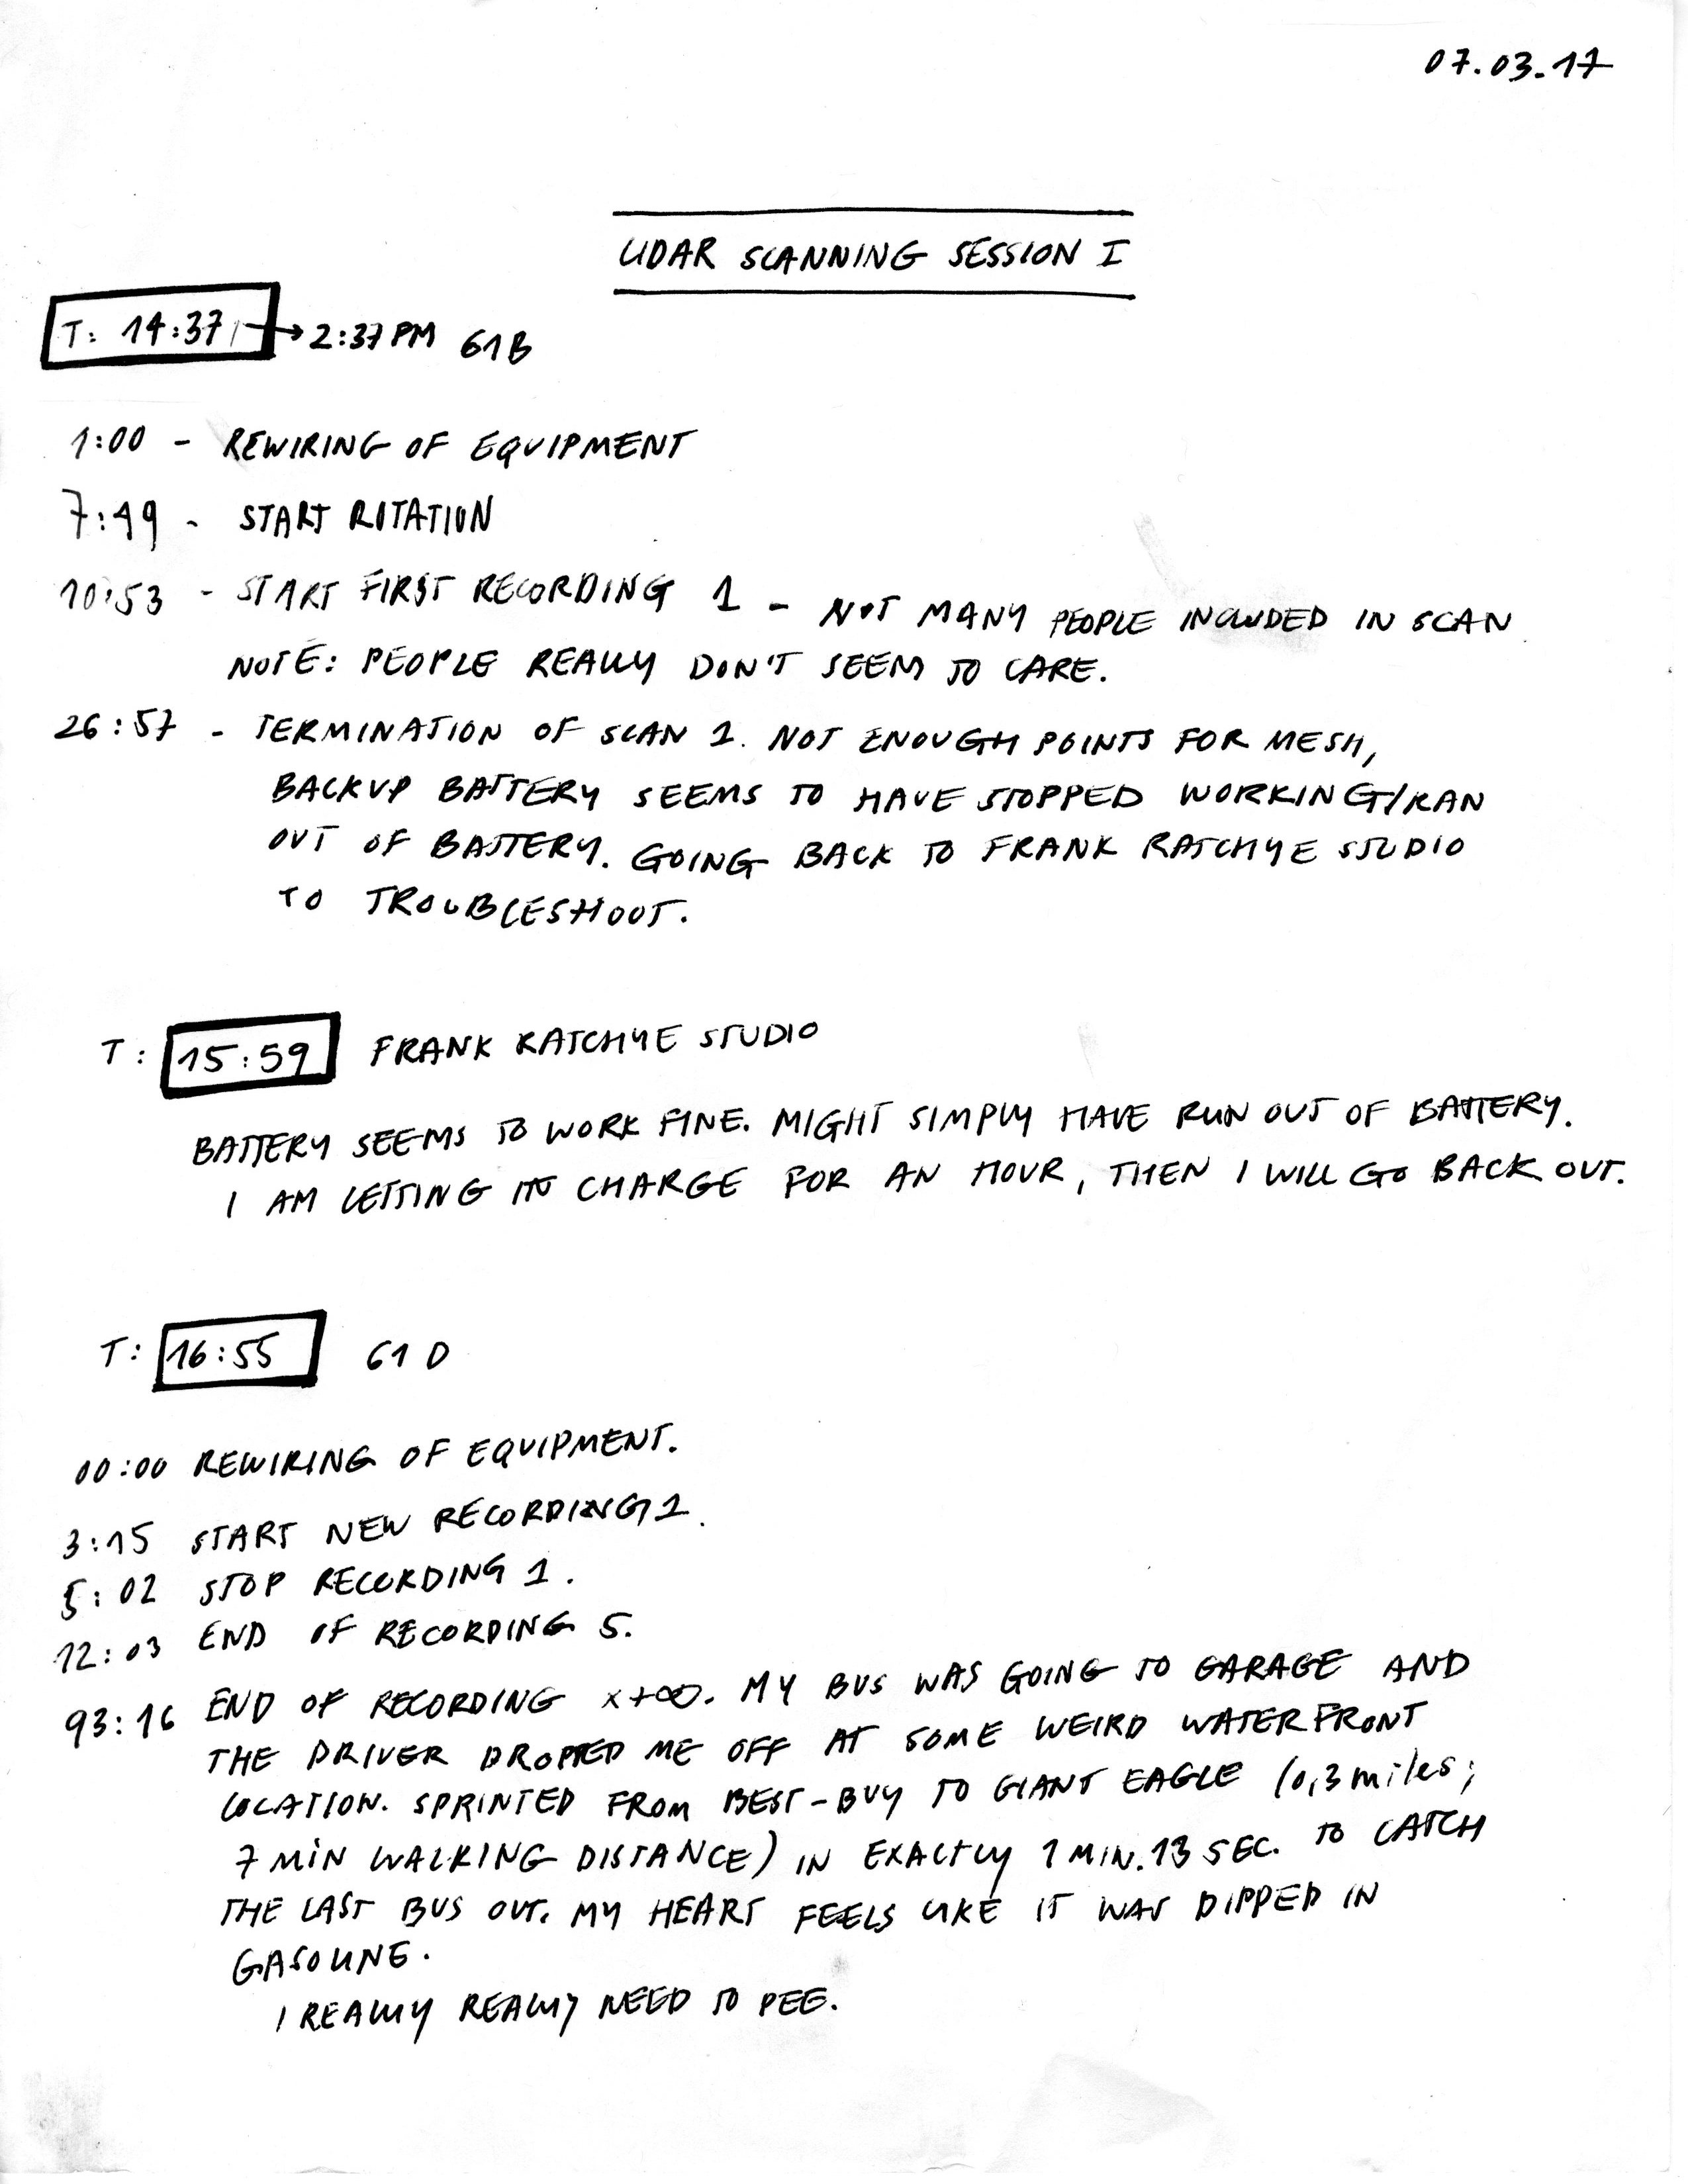 07.03.17
LIDAR SCANNING SESSION I
T: 14:37 → 2:37 PM 61B
1:00 - REWIRING OF EQUIPMENT
7:49 - START ROTATION
10:53 - START FIRST RECORDING 1 - NOT MANY PEOPLE INCLUDED IN SCAN
NOTE: PEOPLE REALLY DON'T SEEM TO CARE.
26:57 - TERMINATION OF SCAN 1. NOT ENOUGH POINTS FOR MESH,
BACKUP BATTERY SEEMS TO HAVE STOPPED WORKING/RAN
OUT OF BATTERY. GOING BACK TO FRANK RATCHYE STUDIO
TO TROUBLESHOOT.
T: 15:59 FRANK RATCHYE STUDIO
BATTERY SEEMS TO WORK FINE. MIGHT SIMPLY HAVE RUN OUT OF BATTERY.
I AM LETTING IT CHARGE FOR AN HOUR, THEN I WILL GO BACK OUT.
T: 16:55 61D
00:00 REWIRING OF EQUIPMENT.
3:15 START NEW RECORDING 1.
5:02 STOP RECORDING 1.
12:03 END OF RECORDING 5.
93:16 END OF RECORDING x+∞. MY BUS WAS GOING TO GARAGE AND
THE DRIVER DROPPED ME OFF AT SOME WEIRD WATERFRONT
LOCATION. SPRINTED FROM BEST-BUY TO GIANT EAGLE (0,3 miles;
7 MIN WALKING DISTANCE) IN EXACTLY 1 MIN. 13 SEC. TO CATCH
THE LAST BUS OUT. MY HEART FEELS LIKE IT WAS DIPPED IN
GASOLINE.
I REALLY REALLY NEED TO PEE.